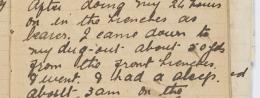 After doing my 24 hours
on in the trenches as
bearer. I came down to
my dug-out about 50 yds
from the front trenches.
I went. I had a sleep.
about 3am on the
ed